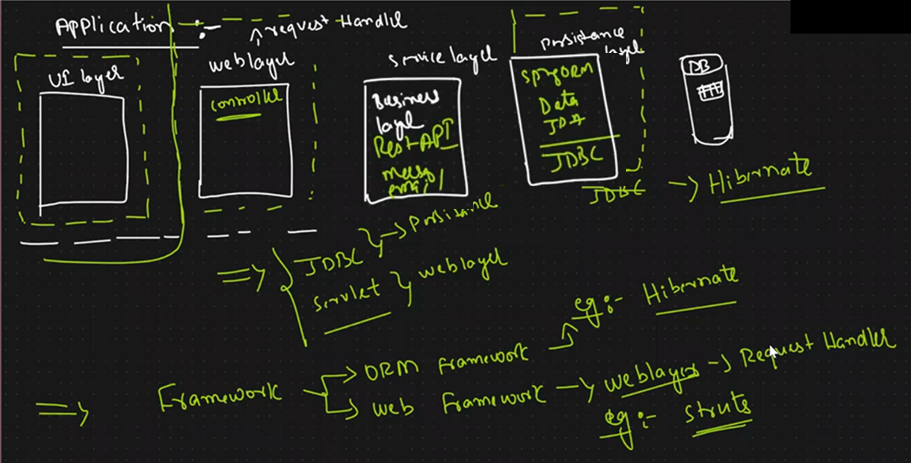 Application :-
request Handler
UI layer
weblayer
controller
service layer
Business
layer
Rest API
Persistance
layer
spring ORM
Data
JPA
JDBC
DB
JDBC -> Hibernate
=> JDBC -> Persistance
Servlet weblayer
eg:- Hibernate
ORM Framework
=> Framework
Web Framework -> weblayer -> Request Handler
eg:- struts